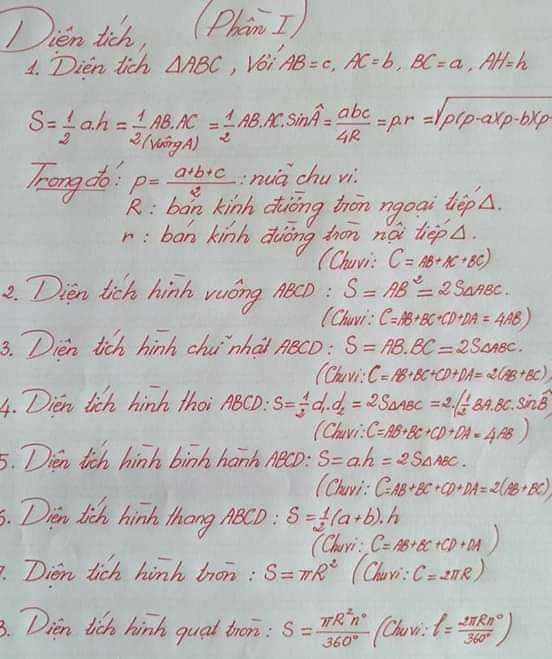 Diện tích, (Phần I)
1. Diện tích ΔABC, Với AB = c, AC = b, BC = a, AH = h
S = 1/2 a.h = 1/2 AB.AC (Vuông A) = 1/2 AB.AC.Sin = abc/4R = p.r = √p(p-a)(p-b)(p-
Trong đó: p = (a+b+c)/2 : nửa chu vi.
R : bán kính đường tròn ngoại tiếp Δ.
r : bán kính đường tròn nội tiếp Δ.
(Chu vi: C = AB+AC+BC)
2. Diện tích hình vuông ABCD : S = AB² = 2SΔABC.
(Chu vi: C=AB+BC+CD+DA = 4AB)
3. Diện tích hình chữ nhật ABCD : S = AB.BC = 2SΔABC.
(Chu vi: C=AB+BC+CD+DA = 2(AB+BC)
4. Diện tích hình thoi ABCD: S = 1/2 d₁.d₂ = 2SΔABC = 2.(1/2 BA.BC.SinB̂
(Chu vi: C=AB+BC+CD+DA = 4AB)
5. Diện tích hình bình hành ABCD: S = a.h = 2SΔABC.
(Chu vi: C=AB+BC+CD+DA = 2(AB+BC)
6. Diện tích hình thang ABCD : S = 1/2 (a+b).h
(Chu vi: C=AB+BC+CD+DA)
7. Diện tích hình tròn : S = πR² (Chu vi: C = 2πR)
8. Diện tích hình quạt tròn : S = πR²n°/360° (Chu vi: l = 2πRn°/360°)